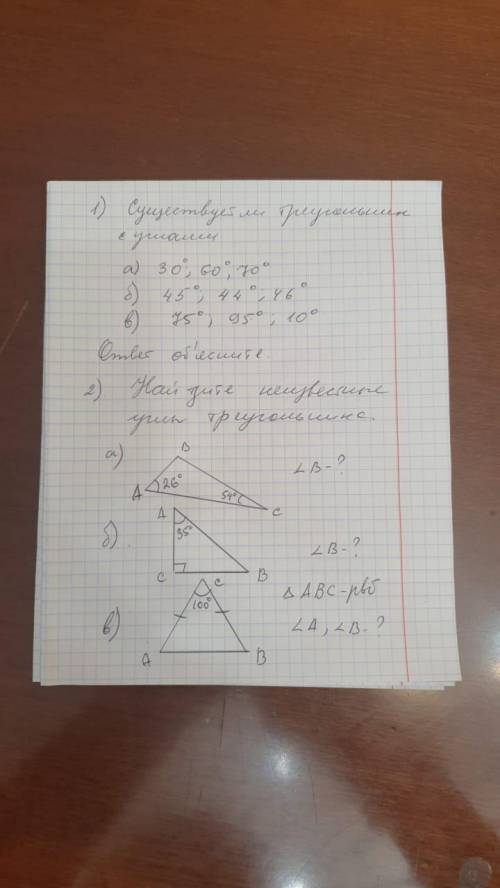 1) Существует ли треугольник
с углами
а) 30°, 60°, 70°
б) 45°, 44°, 46°
в) 75°, 95°, 10°
Ответ объясните.
2) Найдите неизвестные
углы треугольника.
а) B
A 26° 54° C
∠B-?
б) A
35°
C B
∠B-?
в) C
100°
A B
△ABC-рвб
∠A, ∠B-?